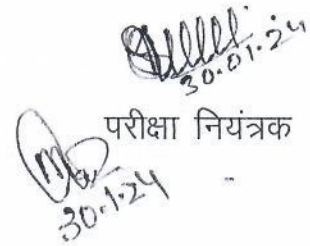 30.01.24
परीक्षा नियंत्रक
30.1.24